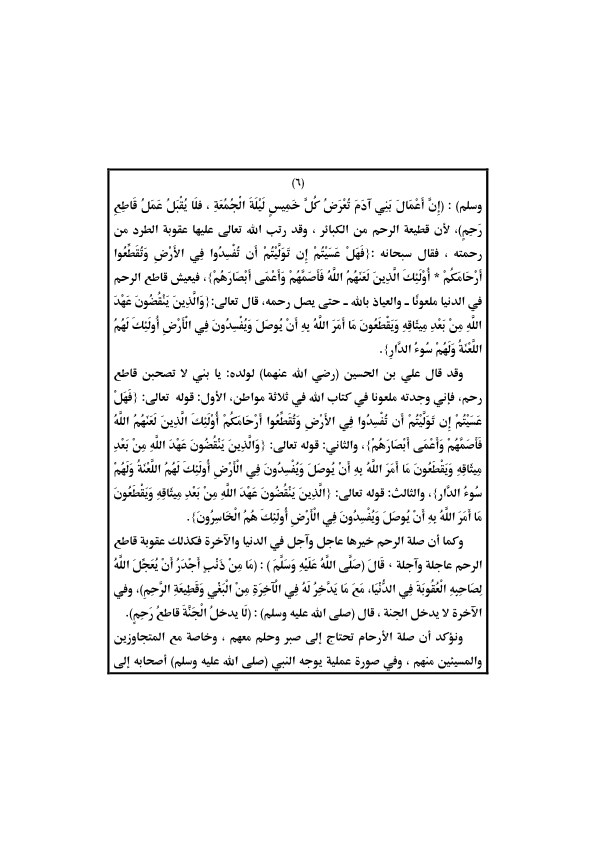 (٦)
وسلم) : (إِنَّ أَعْمَالَ بَنِي آدَمَ تُعْرَضُ كُلَّ خَمِيسٍ لَيْلَةَ الْجُمُعَةِ ، فَلَا يُقْبَلُ عَمَلُ قَاطِعِ
رَحِمٍ)، لأن قطيعة الرحم من الكبائر ، وقد رتب الله تعالى عليها عقوبة الطرد من
رحمته ، فقال سبحانه :{فَهَلْ عَسَيْتُمْ إِن تَوَلَّيْتُمْ أَن تُفْسِدُوا فِي الأَرْضِ وَتُقَطِّعُوا
أَرْحَامَكُمْ * أُوْلَئِكَ الَّذِينَ لَعَنَهُمُ اللَّهُ فَأَصَمَّهُمْ وَأَعْمَى أَبْصَارَهُمْ}، فيعيش قاطع الرحم
في الدنيا ملعونًا ـ والعياذ بالله ـ حتى يصل رحمه، قال تعالى:{وَالَّذِينَ يَنْقُضُونَ عَهْدَ
اللَّهِ مِنْ بَعْدِ مِيثَاقِهِ وَيَقْطَعُونَ مَا أَمَرَ اللَّهُ بِهِ أَنْ يُوصَلَ وَيُفْسِدُونَ فِي الْأَرْضِ أُولَئِكَ لَهُمُ
اللَّعْنَةُ وَلَهُمْ سُوءُ الدَّارِ}.
وقد قال علي بن الحسين (رضي الله عنهما) لولده: يا بني لا تصحبن قاطع
رحم، فإني وجدته ملعونا في كتاب الله في ثلاثة مواطن، الأول: قوله تعالى: {فَهَلْ
عَسَيْتُمْ إِن تَوَلَّيْتُمْ أَن تُفْسِدُوا فِي الأَرْضِ وَتُقَطِّعُوا أَرْحَامَكُمْ أُوْلَئِكَ الَّذِينَ لَعَنَهُمُ اللَّهُ
فَأَصَمَّهُمْ وَأَعْمَى أَبْصَارَهُمْ}، والثاني: قوله تعالى: {وَالَّذِينَ يَنْقُضُونَ عَهْدَ اللَّهِ مِنْ بَعْدِ
مِيثَاقِهِ وَيَقْطَعُونَ مَا أَمَرَ اللَّهُ بِهِ أَنْ يُوصَلَ وَيُفْسِدُونَ فِي الْأَرْضِ أُولَئِكَ لَهُمُ اللَّعْنَةُ وَلَهُمْ
سُوءُ الدَّارِ}، والثالث: قوله تعالى: {الَّذِينَ يَنْقُضُونَ عَهْدَ اللَّهِ مِنْ بَعْدِ مِيثَاقِهِ وَيَقْطَعُونَ
مَا أَمَرَ اللَّهُ بِهِ أَنْ يُوصَلَ وَيُفْسِدُونَ فِي الْأَرْضِ أُولَئِكَ هُمُ الْخَاسِرُونَ}.
وكما أن صلة الرحم خيرها عاجل وآجل في الدنيا والآخرة فكذلك عقوبة قاطع
الرحم عاجلة وآجلة ، قَالَ (صَلَّى اللَّهُ عَلَيْهِ وَسَلَّمَ) : (مَا مِنْ ذَنْبٍ أَجْدَرُ أَنْ يُعَجِّلَ اللَّهُ
لِصَاحِبِهِ الْعُقُوبَةَ فِي الدُّنْيَا، مَعَ مَا يَدَّخِرُ لَهُ فِي الْآخِرَةِ مِنَ الْبَغْيِ وَقَطِيعَةِ الرَّحِمِ)، وفي
الآخرة لا يدخل الجنة ، قال (صلى الله عليه وسلم) : (لَا يدخلُ الْجَنَّةَ قاطعُ رَحِمٍ).
ونؤكد أن صلة الأرحام تحتاج إلى صبر وحلم معهم ، وخاصة مع المتجاوزين
والمسيئين منهم ، وفي صورة عملية يوجه النبي (صلى الله عليه وسلم) أصحابه إلى